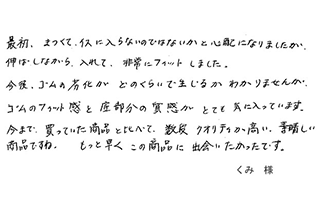 最初、きつくて、イスに入らないのではないかと心配になりましたが、
伸ばしながら、入れて、非常にフィットしました。
今後、ゴムの劣化がどのくらいで生じるかわかりませんが、
ゴムのフィット感と底部分の質感がとても気に入っています。
今まで、買っていた商品と比べて、数段クオリティが高い、素晴しい
商品ですね。もっと早くこの商品に出会いたかったです。
くみ 様